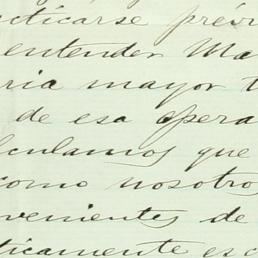 cticarse prévi
entender Ma
ria mayor t
de esa opera
culamos que
como nosotro
venientes de
ticamente esc